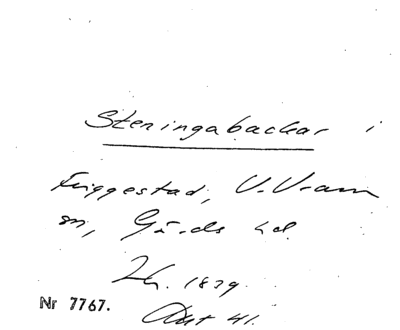 Steningabackar i
Friggestad, V. Vram
sn, Gärds hd.
Lh. 1879.
Nr 7767.
Akt 41.